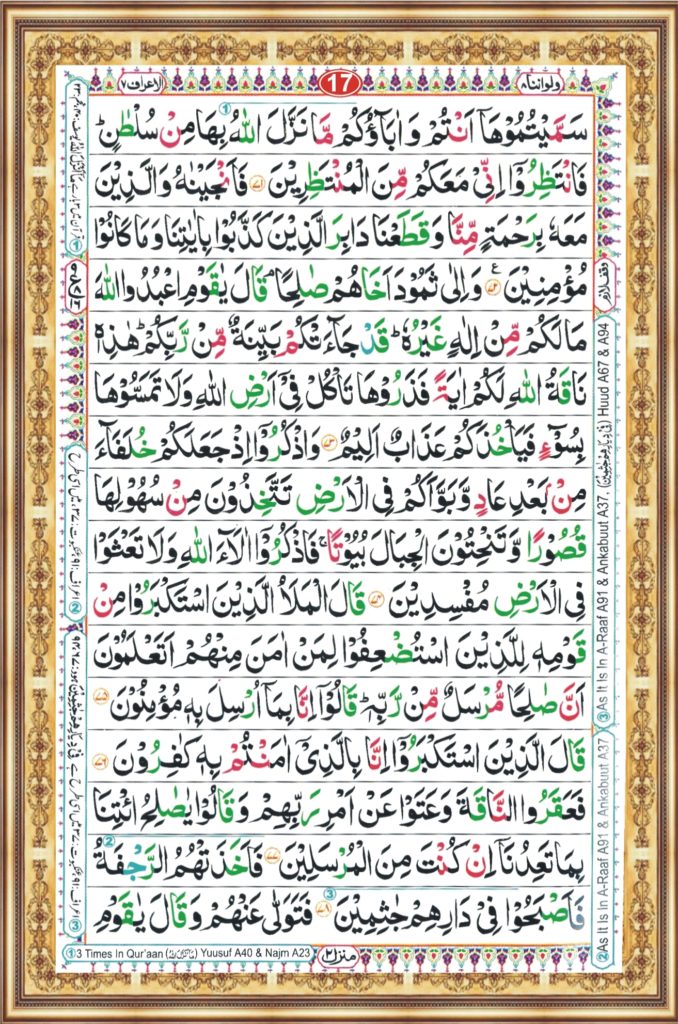 ولواننا ٨
17
الاعراف ٧
سَمَّيْتُمُوْهَاۤ اَنْتُمْ وَاٰبَآؤُكُمْ مَّا نَزَّلَ اللّٰهُ بِهَا مِنْ سُلْطٰنٍ ؕ
فَانْتَظِرُوْۤا اِنِّىْ مَعَكُمْ مِّنَ الْمُنْتَظِرِيْنَ ﴿٧١﴾ فَاَنْجَيْنٰهُ وَالَّذِيْنَ
مَعَهٗ بِرَحْمَةٍ مِّنَّا وَقَطَعْنَا دَابِرَ الَّذِيْنَ كَذَّبُوْا بِاٰيٰتِنَا وَمَا كَانُوْا
مُؤْمِنِيْنَ ﴿٧٢﴾ وَاِلٰى ثَمُوْدَ اَخَاهُمْ صٰلِحًا ۘ قَالَ يٰقَوْمِ اعْبُدُوا اللّٰهَ
مَا لَكُمْ مِّنْ اِلٰهٍ غَيْرُهٗ ؕ قَدْ جَآءَتْكُمْ بَيِّنَةٌ مِّنْ رَّبِّكُمْ ؕ هٰذِهٖ
نَاقَةُ اللّٰهِ لَكُمْ اٰيَةً فَذَرُوْهَا تَاْكُلْ فِىْۤ اَرْضِ اللّٰهِ وَلَا تَمَسُّوْهَا
بِسُوْٓءٍ فَيَاْخُذَكُمْ عَذَابٌ اَلِيْمٌ ﴿٧٣﴾ وَاذْكُرُوْۤا اِذْ جَعَلَكُمْ خُلَفَآءَ
مِنْۢ بَعْدِ عَادٍ وَّبَوَّاَكُمْ فِى الْاَرْضِ تَتَّخِذُوْنَ مِنْ سُهُوْلِهَا
قُصُوْرًا وَّتَنْحِتُوْنَ الْجِبَالَ بُيُوْتًا ۚ فَاذْكُرُوْۤا اٰلَآءَ اللّٰهِ وَلَا تَعْثَوْا
فِى الْاَرْضِ مُفْسِدِيْنَ ﴿٧٤﴾ قَالَ الْمَلَاُ الَّذِيْنَ اسْتَكْبَرُوْا مِنْ
قَوْمِهٖ لِلَّذِيْنَ اسْتُضْعِفُوْا لِمَنْ اٰمَنَ مِنْهُمْ اَتَعْلَمُوْنَ
اَنَّ صٰلِحًا مُّرْسَلٌ مِّنْ رَّبِّهٖ ؕ قَالُوْۤا اِنَّا بِمَاۤ اُرْسِلَ بِهٖ مُؤْمِنُوْنَ ﴿٧٥﴾
قَالَ الَّذِيْنَ اسْتَكْبَرُوْۤا اِنَّا بِالَّذِىْۤ اٰمَنْتُمْ بِهٖ كٰفِرُوْنَ ﴿٧٦﴾
فَعَقَرُوا النَّاقَةَ وَعَتَوْا عَنْ اَمْرِ رَبِّهِمْ وَقَالُوْا يٰصٰلِحُ ائْتِنَا
بِمَا تَعِدُنَاۤ اِنْ كُنْتَ مِنَ الْمُرْسَلِيْنَ ﴿٧٧﴾ فَاَخَذَتْهُمُ الرَّجْفَةُ
فَاَصْبَحُوْا فِىْ دَارِهِمْ جٰثِمِيْنَ ﴿٧٨﴾ فَتَوَلّٰى عَنْهُمْ وَقَالَ يٰقَوْمِ
منزل ٢
① 3 Times In Qur'aan Yuusuf A40 & Najm A23
② As It Is In A-Raaf A91 & Ankabuut A37
③ As It Is In A-Raaf A91 & Ankabuut A37, Huud A67 & A94
وقف لازم